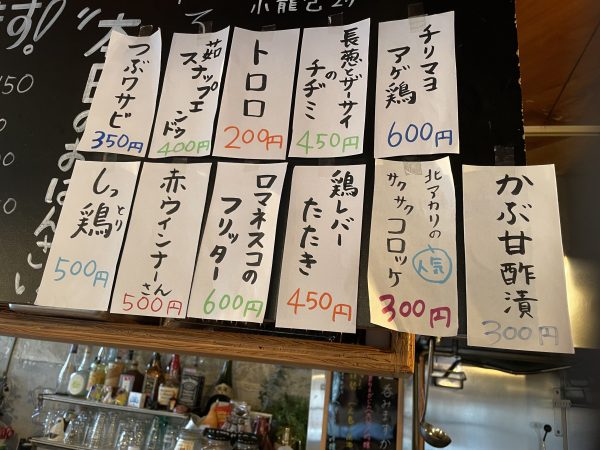 小龍包
本日のおばんざい
チリマヨ
アゲ鶏
600円
長葱とザーサイ
の
チヂミ
450円
トロロ
200円
茹
スナップエ
ンドウ
400円
つぶワサビ
350円
かぶ甘酢漬
300円
北アカリの
人気
サクサク
コロッケ
300円
鶏レバー
たたき
450円
ロマネスコの
フリッター
600円
赤ウインナーさん
500円
しっとり
鶏
500円
呑みますか